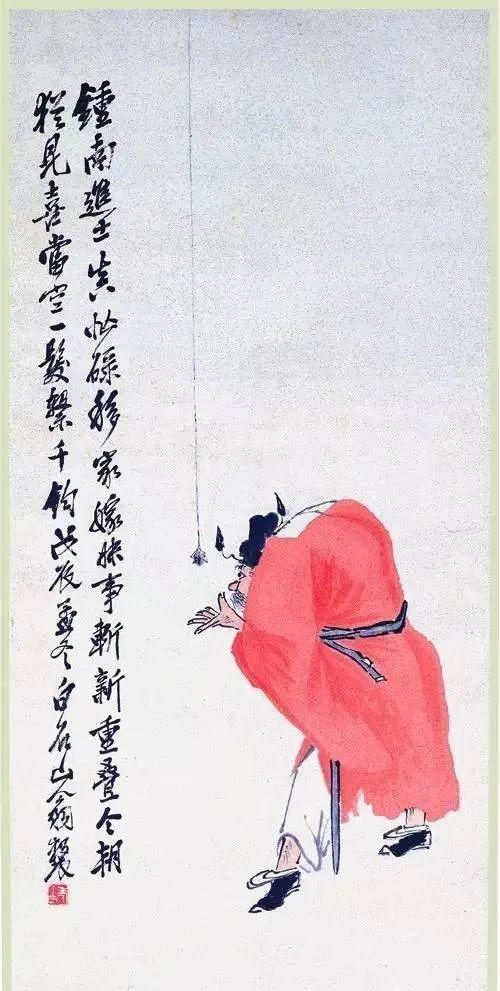 鍾南進士真忙碌移家嫁妹事斬新重叠今朝
猶見喜當空一髮繫千鈞戊辰孟冬白石山翁製